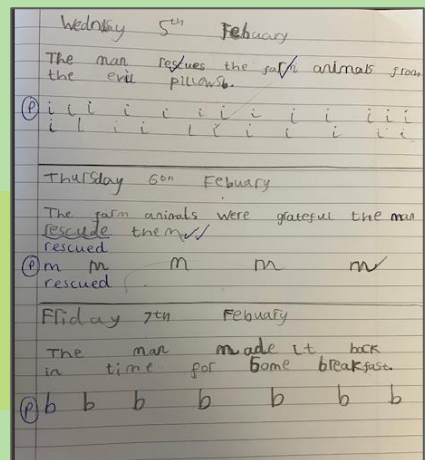 Wednsday 5th Febuary
The man rescues the farm animals from
the evil pillows.
P i i i i i i i i i i i i i
i l i i l i i i i i i
Thursday 6th Febuary
The farm animals were grateful the man
rescude them
rescued
P m m m m m
rescued
Friday 7th Febuary
The man made it back
in time for some breakfast.
P b b b b b b b